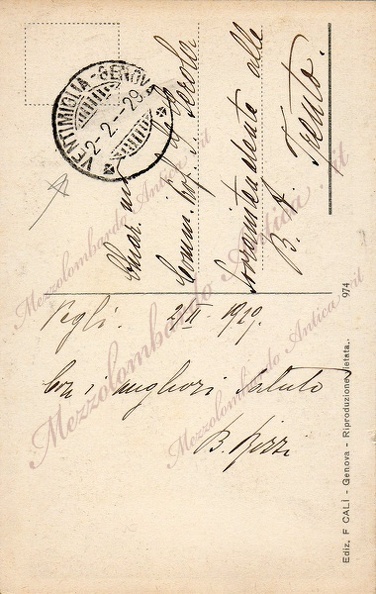 VENTIMIGLIA - GENOVA
2-2-29
Chiar.mo
Comm. Prof. G. Gerola
Sovraintendente alle
B. A.
Trento.
Pegli. 2/II - 1929.
Con i migliori saluti
B. Rizzi
974
Ediz. F. CALÌ - Genova - Riproduzione vietata.
Mezzolombardo Antica.it
Mezzolombardo Antica.it
Mezzolombardo Antica.it